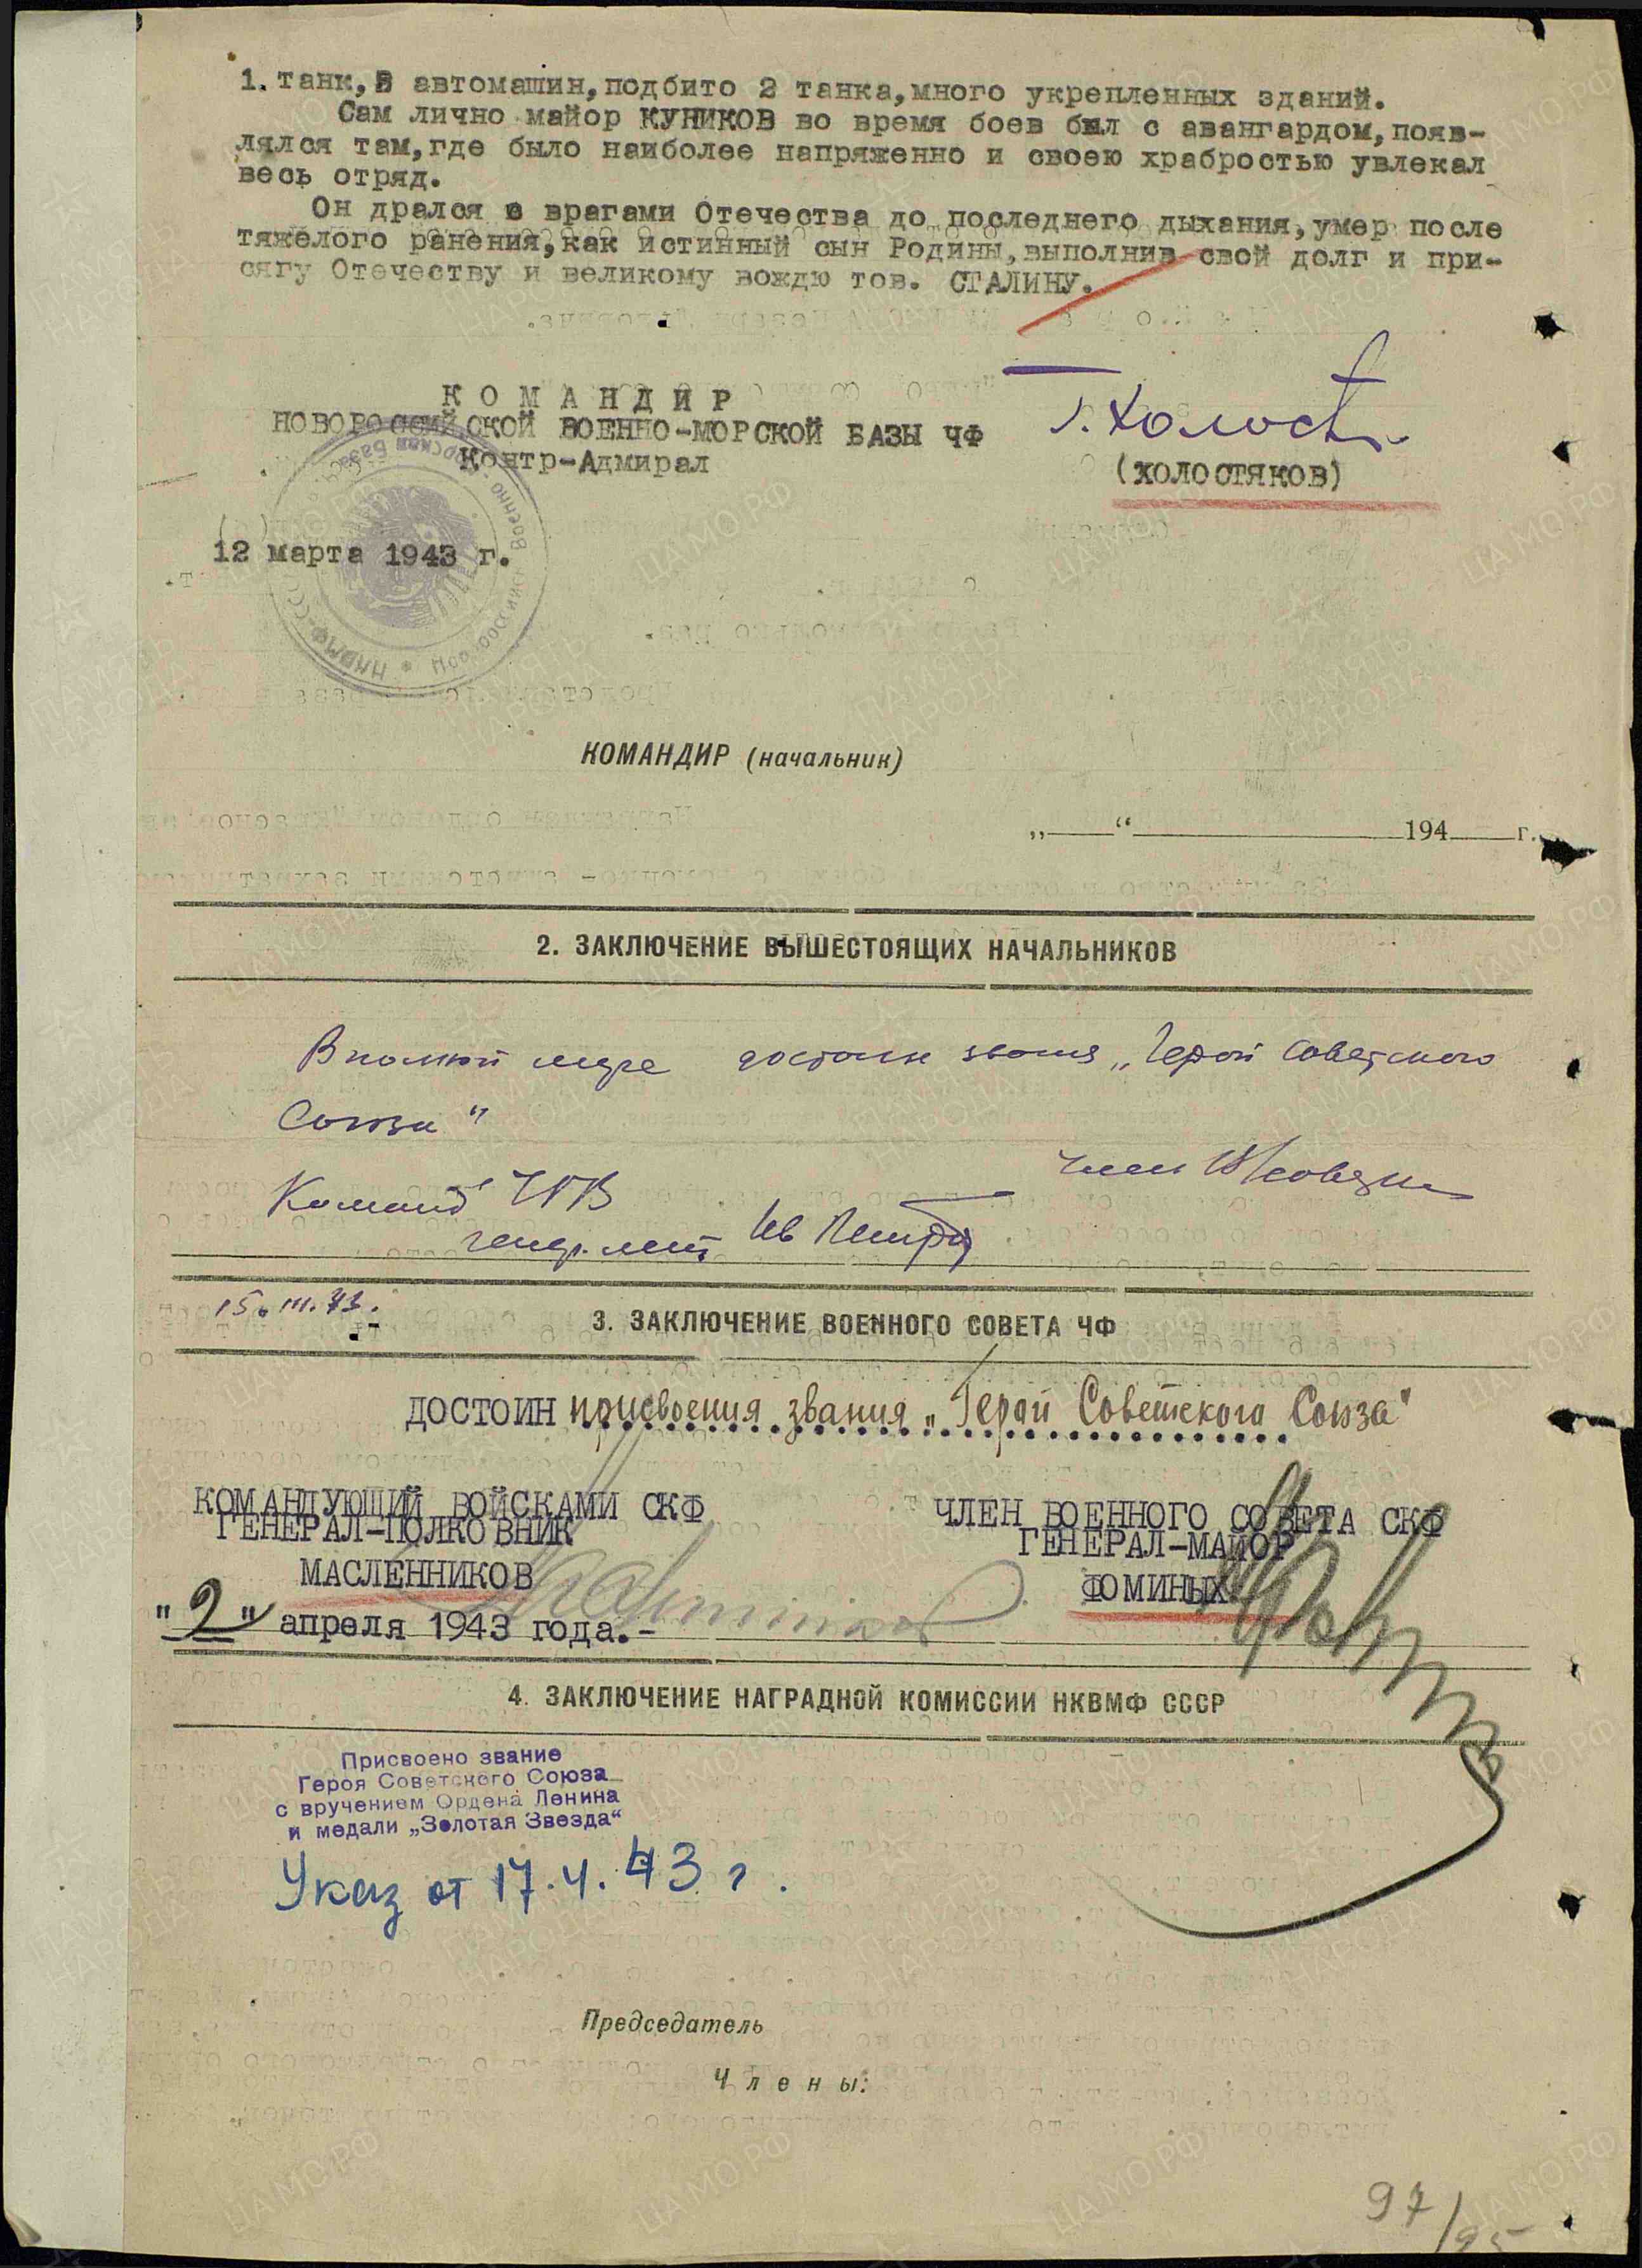 1. танк, 5 автомашин, подбито 2 танка, много укрепленных зданий.
Сам лично майор КУНИКОВ во время боев был с авангардом, появ-
лялся там, где было наиболее напряженно и своею храбростью увлекал
весь отряд.
Он дрался с врагами Отечества до последнего дыхания, умер после
тяжелого ранения, как истинный сын Родины, выполнив свой долг и при-
сягу Отечеству и великому вождю тов. СТАЛИНУ.
К О М А Н Д И Р
НОВОРОССИЙСКОЙ ВОЕННО-МОРСКОЙ БАЗЫ ЧФ
Контр-Адмирал
Г. Холост
(ХОЛОСТЯКОВ)
12 марта 1943 г.
КОМАНДИР (начальник)
„ “ 194 г.
2. ЗАКЛЮЧЕНИЕ ВЫШЕСТОЯЩИХ НАЧАЛЬНИКОВ
В полной мере достоин звания „Герой Советского
Союза"
Команд ЧГВ
генер. лейт Ив Петров
Член В/совета
15.III.43.
3. ЗАКЛЮЧЕНИЕ ВОЕННОГО СОВЕТА ЧФ
ДОСТОИН присвоения звания „Герой Советского Союза"
КОМАНДУЮЩИЙ ВОЙСКАМИ СКФ
ГЕНЕРАЛ-ПОЛКОВНИК
МАСЛЕННИКОВ
ЧЛЕН ВОЕННОГО СОВЕТА СКФ
ГЕНЕРАЛ-МАЙОР
ФОМИНЫХ
"2" апреля 1943 года.-
4. ЗАКЛЮЧЕНИЕ НАГРАДНОЙ КОМИССИИ НКВМФ СССР
Присвоено звание
Героя Советского Союза
с вручением Ордена Ленина
и медали „Золотая Звезда“
Указ от 17.4.43 г.
Председатель
Члены:
97/95